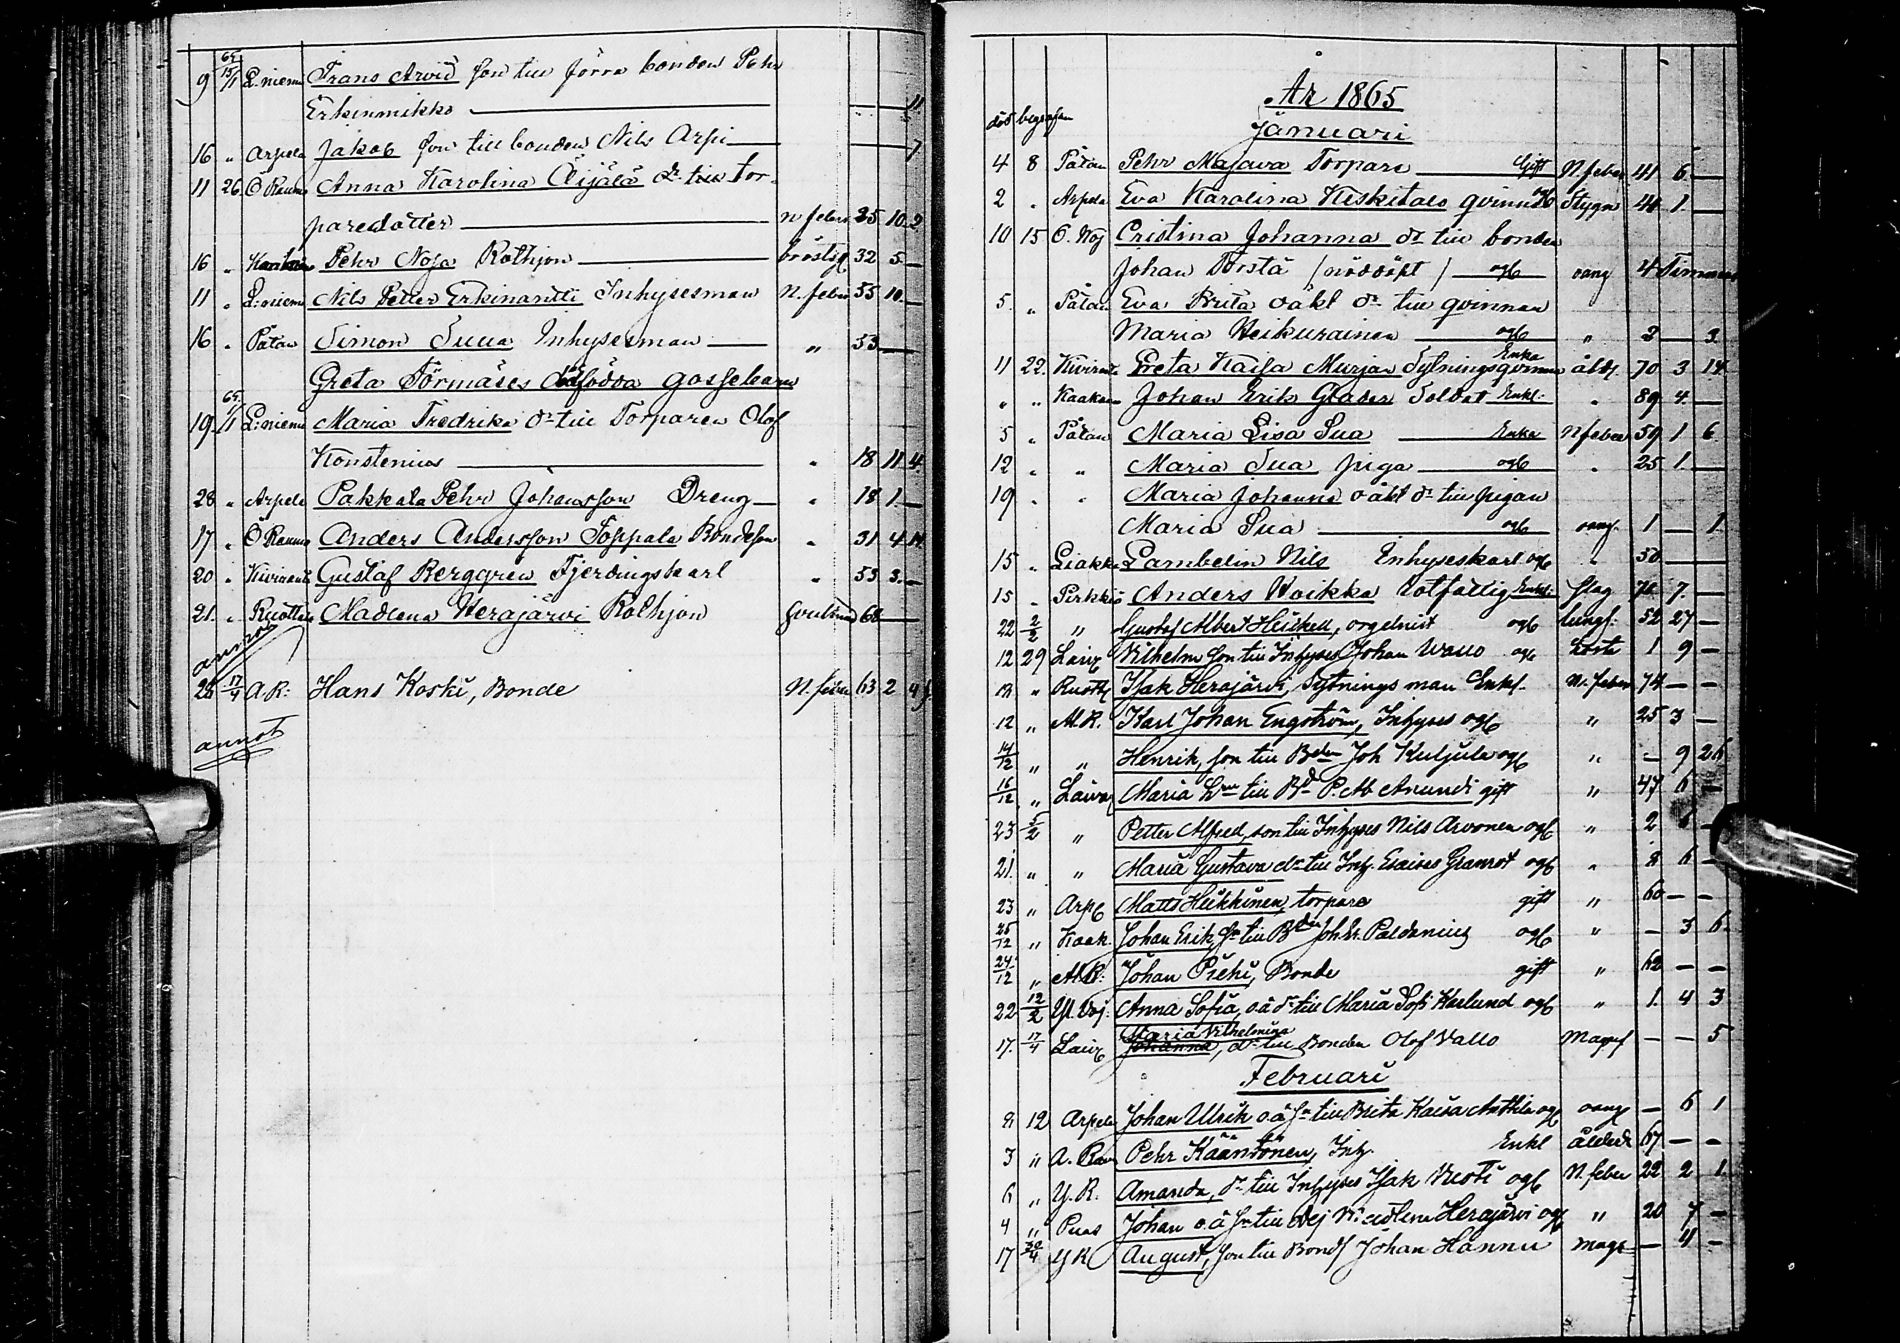 65
9 15/1 L:niemi Frans Arvid son till förra bonden Pehr
Erkinmikko — 11
16 " Arpela Jakob son till bonden Nils Arpi — 7
11 26 Ö Raumo Anna Karolina Äijälä dr till tor-
paredotter — n feber 25 10 2
16 " Pehr Noja Rothjon — bröstsj 32 5 —
11 " L:niemi Nils Petter Erkinantti Inhysesman N. feber 55 10 —
16 " Påtan Simon Suua Inhysesman — " 53 —
Greta Törmäses gossebarn
65
19 /1 L:niemi Maria Fredrika dr till Torparen Olof
Konstenius — " 18 11 4
28 " Arpela Pakkala Pehr Johansson Dreng — " 18 1 —
17 " Ö Raumo Anders Andersson Toppala Bondeson " 31 4 14
20 " Kiviranta Gustaf Berggren Fjerdingskarl " 53 3 —
21 " Ruottala Madlena Herajärvi Rothjon 60 —
annot
28 17/4 A.R: Hans Koski, Bonde N. feber 63 2 4
annot
År 1865
död begrafen
Januari
4 8 Påtan Pehr Majava Torpare — Gift N. feber 41 6 —
2 " Arpela Eva Karolina Keskitalo qvinna og Stygn 44 1 —
10 15 Ö. Woj Cristina Johanna dr till bonden
Johan Törstä (nöddöpt) — og oang 4 Timmar
5 " Påtan Eva Brita oäkt dr till qvinnan
Maria Heikurainen — og " 2 — 3
11 22 Kiviranta Greta Kaisa Murjan Sytningsqvinna Enka åld. 70 3 14
" " Kaakamo Johan Erik Glader Soldat Enkl: " 89 4 —
5 " Påtan Maria Lisa Sua — Enka N feber 59 1 6
12 " " Maria Sua piga — og " 25 1 —
19 " " Maria Johanna oäkt dr till pigan
Maria Sua — og oang. 1 — 1
15 " Liakka Lambelin Nils Inhyseskarl og " 50 —
15 " Pirkkiö Anders Waikka Rotfattig Enkl. slag 70 7 —
22 2/2 " Gustaf Albert Heickell, orgelnist og lungs: 52 27 —
12 29 Laiv Vilhelm son till Inhyses Johan Wallo og hosta 1 9 —
" Ruott Isak Herajärvi, Sytningsman Enkl. N. feber 74 — —
12 " Al R. Karl Johan Engström, Inhyses og " 25 3 —
14/12 " " Henrik, son till Bden Joh Kuljula og " — 9 26
16/12 " Laiva Maria till Bd P. Ab Anundi gift " 47 6 —
23 5/2 " Petter Alfred, son till Inhyses Nils Arvonen og " 2 6 —
21 " " Maria Gustava dr till Inh. Esaias Granrot og " 8 6 —
23 " Arp Matts Heikkinen, torpare gift " 60 — —
25/12 " Kaak. Johan Erik sn till Bden Joh. Er. Paldanius og " — 3 6
24/12 " Al.R: Johan Piehi, Bonde gift " 62 — —
22 12/2 Yl. Voj: Anna Sofia, oä dr till Maria Sofi Karlund og " 1 4 3
Maria Vilhelmina
17 17/4 Laiv Johanna, dr till Bonden Olof Vallo Magsj — — 5
Februari
8 12 Arpela Johan Ulrik oä sn till Brita Kaisa Anttila og oang — 6 1
3 " A. Rau Pehr Kääntönen, Inh. Enkl ålderd 67 — —
6 " Y.R. Amanda, dr till Inhyses Isak Ruoti og N. feber 22 2 1
4 " Puas Johan o.ä sn till Madlena Herajärvi og " 20 7 —
17 30/4 Y R August, son till Bond Johan Hannu mags — 11 —